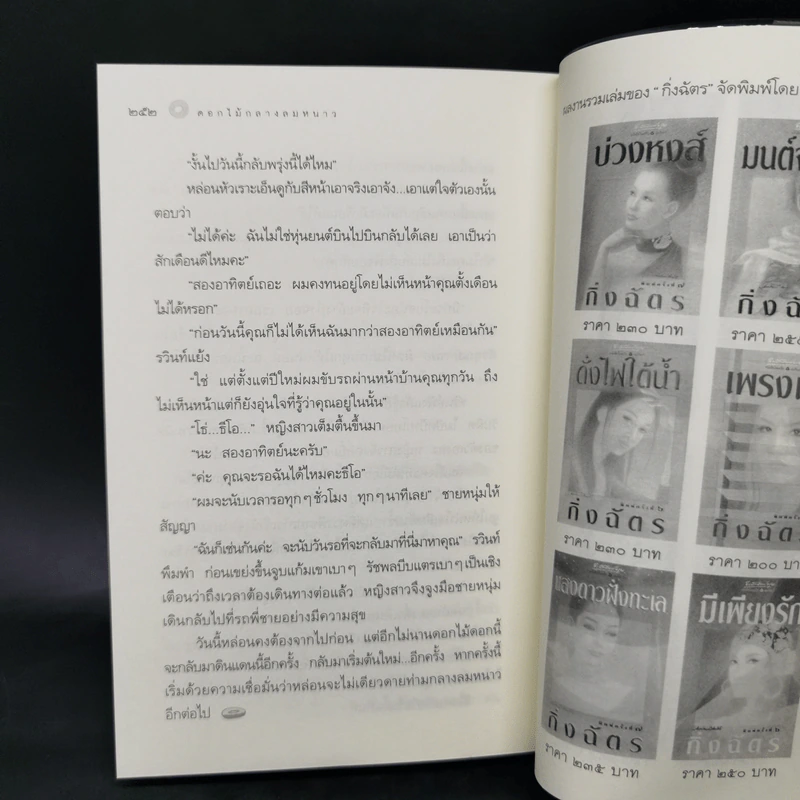 ๒๕๒ ดอกไม้กลางลมหนาว
"งั้นไปวันนี้กลับพรุ่งนี้ได้ไหม"
หล่อนหัวเราะเอ็นดูกับสีหน้าเอาจริงเอาจัง...เอาแต่ใจตัวเองนั้น
ตอบว่า
"ไม่ได้ค่ะ ฉันไม่ใช่หุ่นยนต์บินไปบินกลับได้เลย เอาเป็นว่า
สักเดือนดีไหมคะ"
"สองอาทิตย์เถอะ ผมคงทนอยู่โดยไม่เห็นหน้าคุณตั้งเดือน
ไม่ได้หรอก"
"ก่อนวันนี้คุณก็ไม่ได้เห็นฉันมากว่าสองอาทิตย์เหมือนกัน"
รวินท์แย้ง
"ใช่ แต่ตั้งแต่ปีใหม่ผมขับรถผ่านหน้าบ้านคุณทุกวัน ถึง
ไม่เห็นหน้าแต่ก็ยังอุ่นใจที่รู้ว่าคุณอยู่ในนั้น"
"โธ่...ธีโอ..." หญิงสาวเต็มตื้นขึ้นมา
"นะ สองอาทิตย์นะครับ"
"ค่ะ คุณจะรอฉันได้ไหมคะธีโอ"
"ผมจะนับเวลารอทุกๆชั่วโมง ทุกๆนาทีเลย" ชายหนุ่มให้
สัญญา
"ฉันก็เช่นกันค่ะ จะนับวันรอที่จะกลับมาที่นี่มาหาคุณ" รวินท์
พึมพำ ก่อนเขย่งขึ้นจูบแก้มเขาเบาๆ รัชพลบีบแตรเบาๆเป็นเชิง
เตือนว่าถึงเวลาต้องเดินทางต่อแล้ว หญิงสาวจึงจูงมือชายหนุ่ม
เดินกลับไปที่รถพี่ชายอย่างมีความสุข
วันนี้หล่อนคงต้องจากไปก่อน แต่อีกไม่นานดอกไม้ดอกนี้
จะกลับมาดินแดนนี้อีกครั้ง กลับมาเริ่มต้นใหม่...อีกครั้ง หากครั้งนี้
เริ่มด้วยความเชื่อมั่นว่าหล่อนจะไม่เดียวดายท่ามกลางลมหนาว
อีกต่อไป
ผลงานรวมเล่มของ "กิ่งฉัตร" จัดพิมพ์โดย
บ่วงหงส์
กิ่งฉัตร
ราคา ๒๓๐ บาท
มนต์
กิ่งฉั
ราคา ๒๕๐
ดั่งไฟใต้น้ำ
กิ่งฉัตร
ราคา ๒๓๐ บาท
เพรง
กิ่งฉัตร
ราคา ๒๐๐ บาท
แสงดาวฝั่งทะเล
กิ่งฉัตร
ราคา ๒๓๕ บาท
มีเพียงรัก
กิ่งฉัตร
ราคา ๒๕๐ บาท